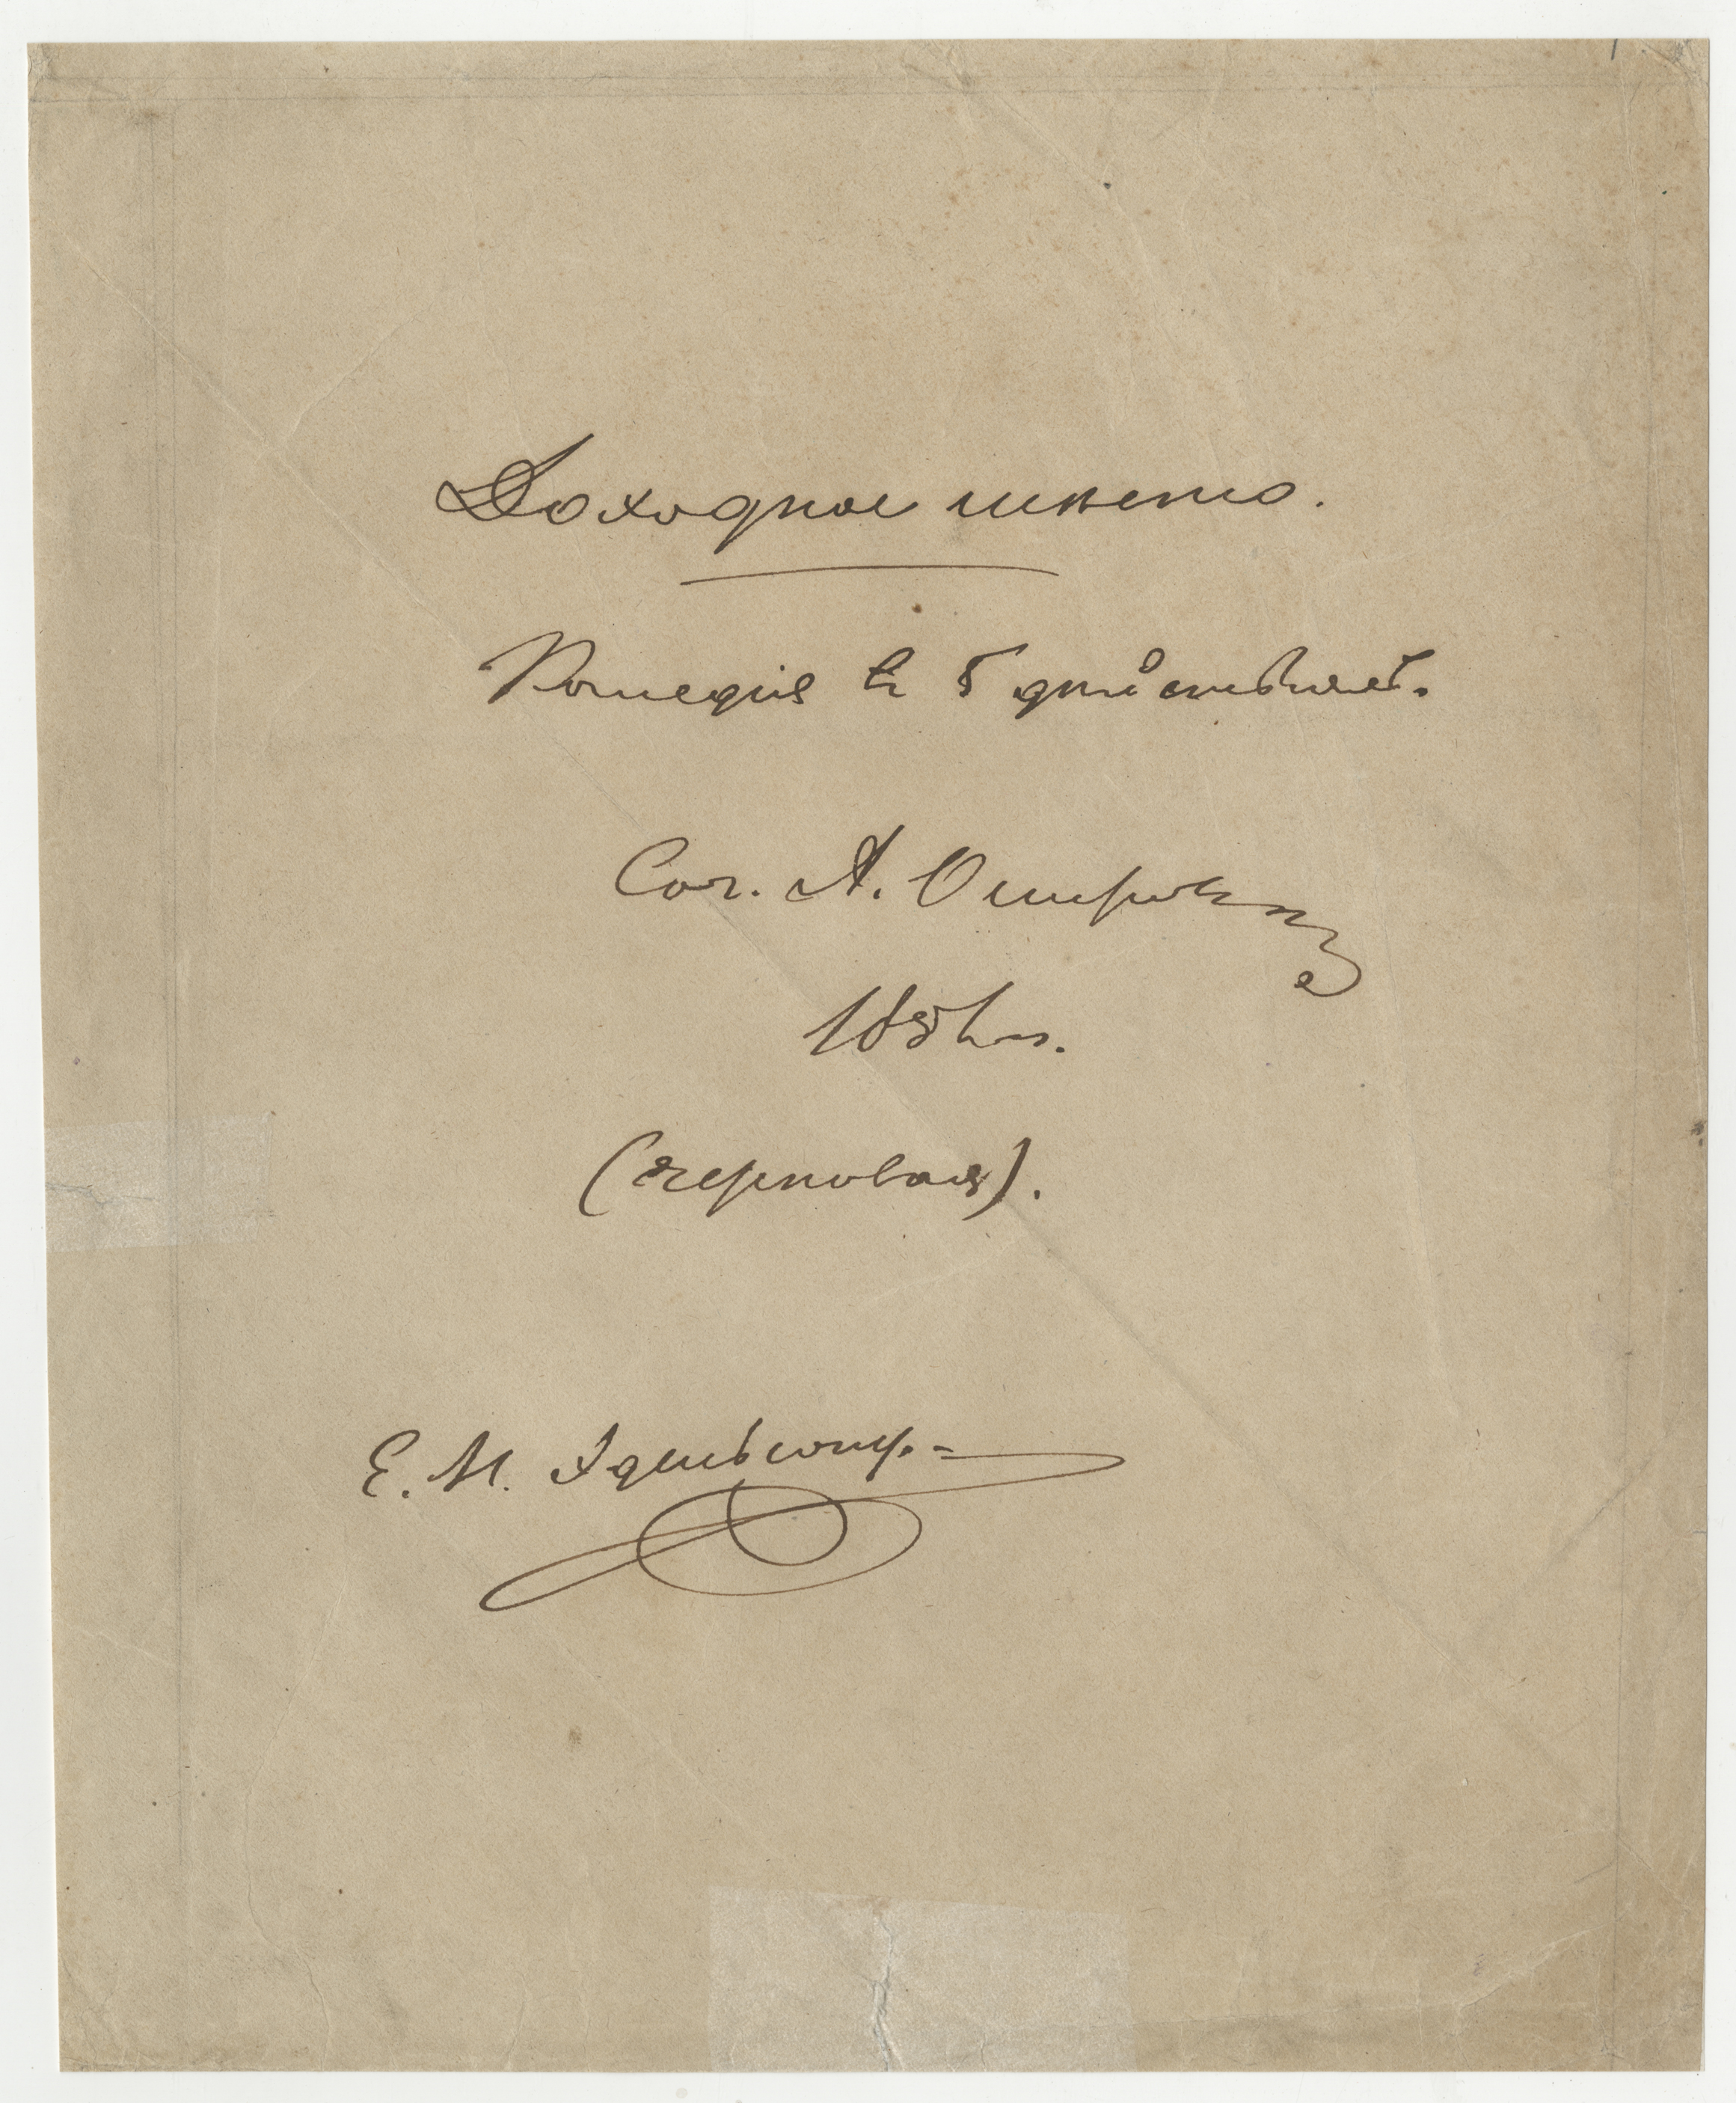 Доходное место.
Комедія въ 5 дѣйствіяхъ.
Соч. А. Островскаго
185 г.
(черновая).
Е. И. Эдельсону.